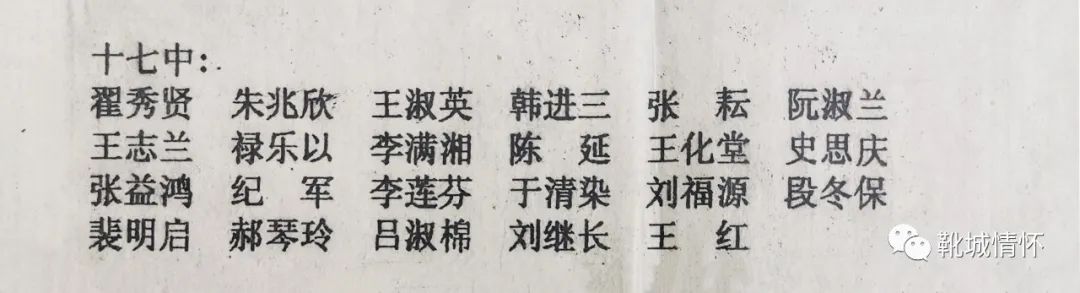 十七中:
翟秀贤 朱兆欣 王淑英 韩进三 张 耘 阮淑兰
王志兰 禄乐以 李满湘 陈 延 王化堂 史思庆
张益鸿 纪 军 李莲芬 于清染 刘福源 段冬保
裴明启 郝琴玲 吕淑棉 刘继长 王 红
靴城情怀